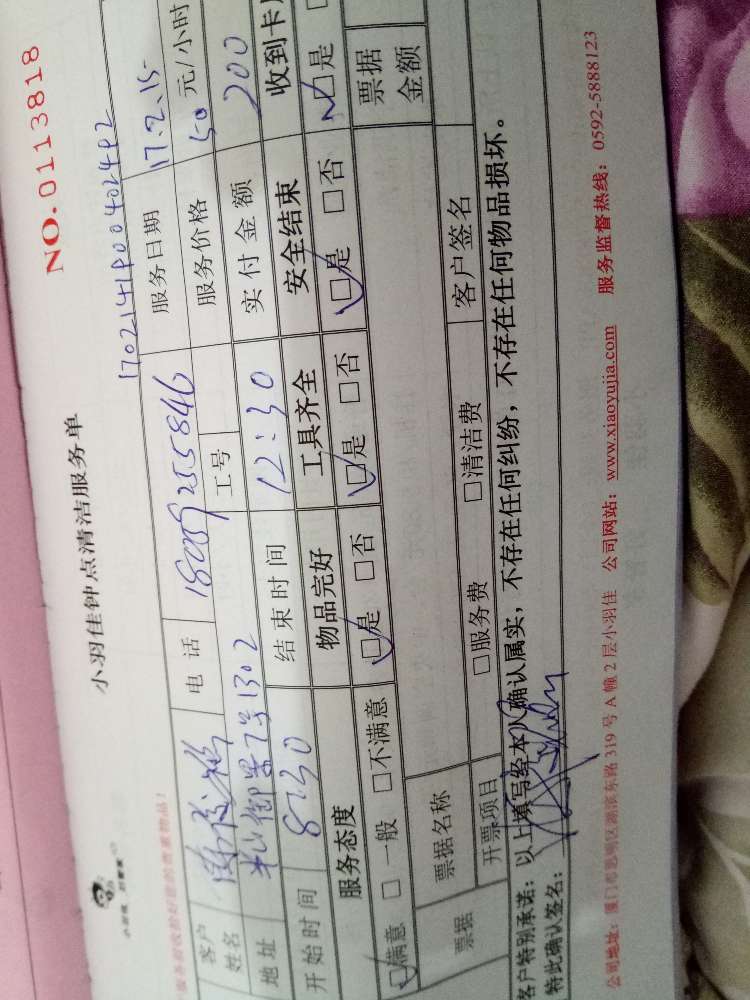 NO.0113818
小羽佳钟点清洁服务单
1702141P00402492
客户姓名
电 话 18025255846
服务日期 17.2.15
地址 半山御景7号1302
工号
服务价格 50 元/小时
开始时间 8:30 结束时间 12:30 实付金额 200
服务态度 物品完好 工具齐全 安全结束 收到卡
☑满意 □一般 □不满意 ☑是 □否 ☑是 □否 ☑是 □否 ☑是
票据 票据名称 票据金额
开票项目 □服务费 □清洁费 客户签名
客户特别承诺：以上填写经本人确认属实，不存在任何纠纷，不存在任何物品损坏。
特此确认签名：
公司地址：厦门市思明区湖滨东路 319 号 A 幢 2 层小羽佳 公司网站：www.xiaoyujia.com 服务监督热线：0592-5888123